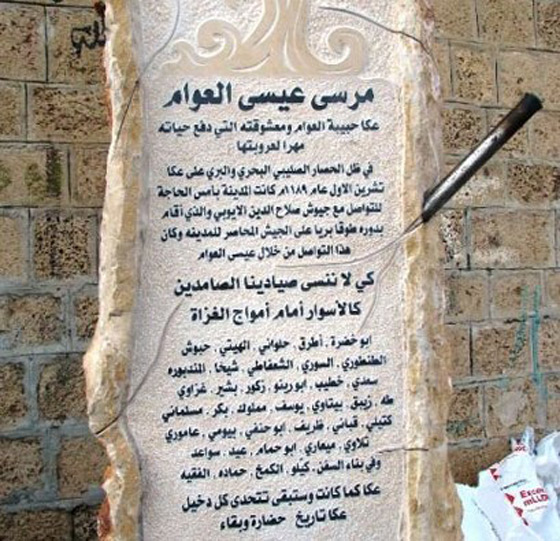 مرسى عيسى العوام
عكا حبيبة العوام ومعشوقته التي دفع حياته
مهرا لعروبتها
في ظل الحصار الصليبي البحري والبري على عكا
تشرين الاول عام ١١٨٩م كانت المدينة بأمس الحاجة
للتواصل مع جيوش صلاح الدين الايوبي والذي أقام
بدوره طوقا بريا على الجيش المحاصر للمدينه وكان
هذا التواصل من خلال عيسى العوام
كي لا ننسى صيادينا الصامدين
كالأسوار أمام أمواج الغزاة
ابو خضرة . أطرق . حلواني . الهيتي . حبوش
الطنطوري . السوري . الشعفاطي . شيخا . المندبوره
سعدي . خطيب . ابو رينو . زكور . بشير . غزاوي
طه . زيبق . بيتاوي . يوسف . مملوك . بكر . مسلماني
كتيلي . قباني . ظريف . ابو حنفي . بيومي . عاموري
تلاوي . ميعاري . ابو حمام . عيد . سواعد
وفي بناء السفن . كيلو . الكمخ . حماده . الفقيه
عكا كما كانت وستبقى تتحدى كل دخيل
عكا تاريخ حضارة وبقاء